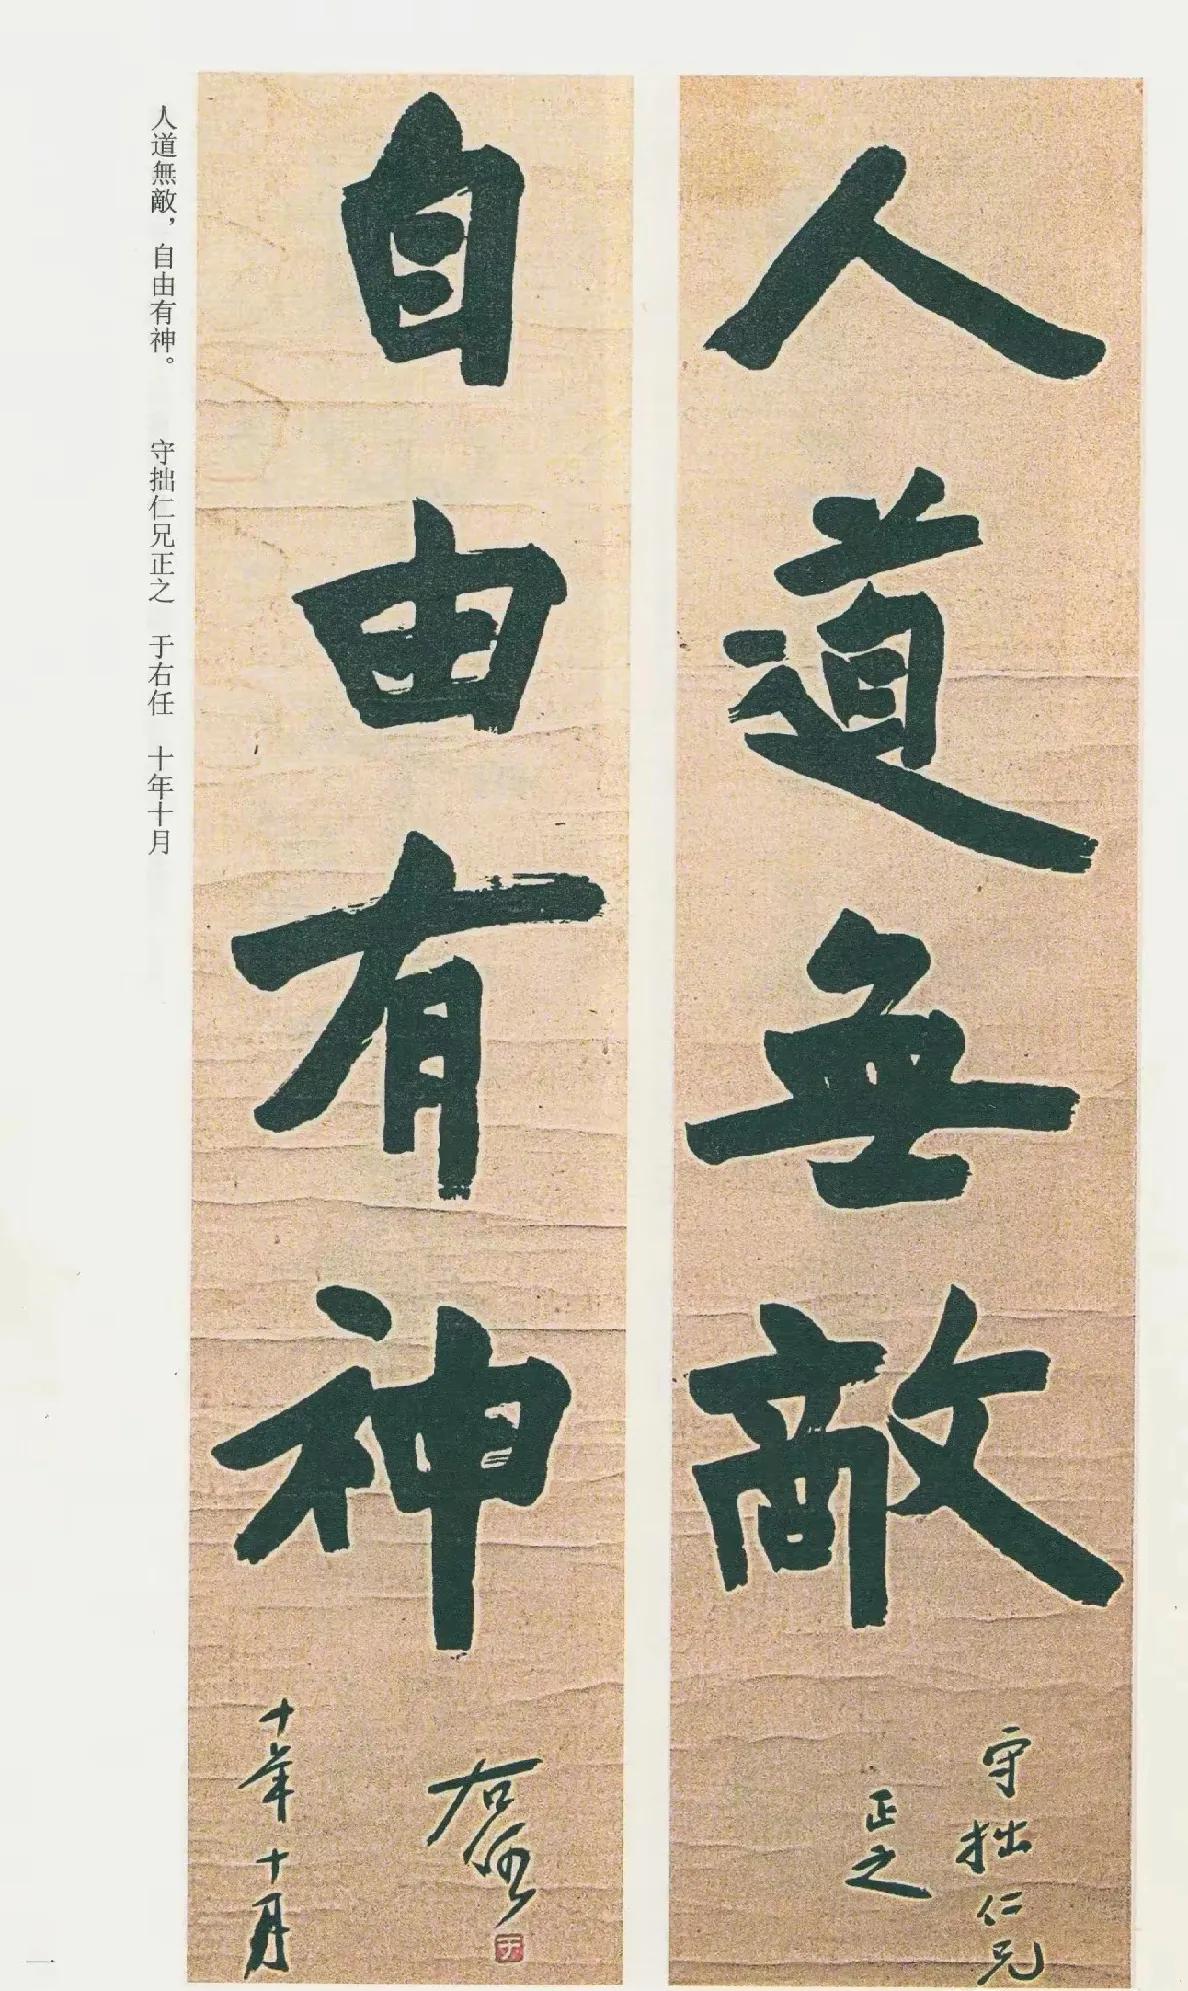 人道無敵
守拙仁兄
正之
自由有神
右任
十年十月
于
人道無敵，自由有神。 守拙仁兄正之 于右任 十年十月
一